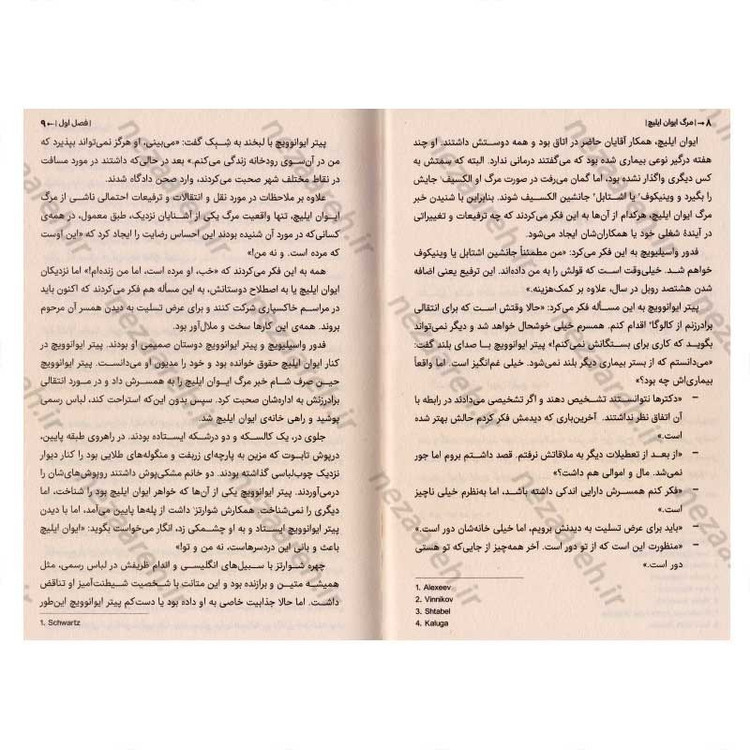 ۸ ← | مرگ ایوان ایلیچ |
ایوان ایلیچ، همکار آقایان حاضر در اتاق بود و همه دوستش داشتند. او چند
هفته درگیر نوعی بیماری شده بود که می‌گفتند درمانی ندارد. البته که سمتش به
کس دیگری واگذار نشده بود، اما گمان می‌رفت در صورت مرگ او الکسیف جایش
را بگیرد و وینیکوف یا اشتابل جانشین الکسیف شوند. بنابراین با شنیدن خبر
مرگ ایوان ایلیچ، هرکدام از آن‌ها به این فکر می‌کردند که چه ترفیعات و تغییراتی
در آیندهٔ شغلی خود یا همکارانشان ایجاد می‌شود.
فدور واسیلیویچ به این فکر می‌کرد: «من مطمئناً جانشین اشتابل یا وینیکوف
خواهم شد. خیلی‌وقت است که قولش را به من داده‌اند. این ترفیع یعنی اضافه
شدن هشتصد روبل در سال، علاوه بر کمک‌هزینه.»
پیتر ایوانوویچ به این مسأله فکر می‌کرد: «حالا وقتش است که برای انتقالی
برادرزنم از کالوگا⁴ اقدام کنم. همسرم خیلی خوشحال خواهد شد و دیگر نمی‌تواند
بگوید که کاری برای بستگانش نمی‌کنم!» پیتر ایوانوویچ با صدای بلند گفت:
«می‌دانستم که از بستر بیماری دیگر بلند نمی‌شود. خیلی غم‌انگیز است. اما واقعاً
بیماری‌اش چه بود؟»
– «دکترها نتوانستند تشخیص دهند و اگر تشخیصی می‌دادند در رابطه با
آن اتفاق نظر نداشتند. آخرین‌باری که دیدمش فکر کردم حالش بهتر شده
است.»
– «از بعد از تعطیلات دیگر به ملاقاتش نرفتم. قصد داشتم بروم اما جور
نمی‌شد. مال و اموالی هم داشت؟»
– «فکر کنم همسرش دارایی اندکی داشته باشد، اما به‌نظرم خیلی ناچیز
است.»
– «باید برای عرض تسلیت به دیدنش برویم، اما خیلی خانه‌شان دور است.»
– «منظورت این است که از تو دور است. آخر همه‌چیز از جایی‌که تو هستی
دور است.»
1. Alexeev
2. Vinnikov
3. Shtabel
4. Kaluga
| فصل اول | → ۹
پیتر ایوانوویچ با لبخند به شبک گفت: «می‌بینی، او هرگز نمی‌تواند بپذیرد که
من در آن‌سوی رودخانه زندگی می‌کنم.» بعد در حالی‌که داشتند در مورد مسافت
در نقاط مختلف شهر صحبت می‌کردند، وارد صحن دادگاه شدند.
علاوه بر ملاحظات در مورد نقل و انتقالات و ترفیعات احتمالی ناشی از مرگ
ایوان ایلیچ، تنها واقعیت مرگ یکی از آشنایان نزدیک، طبق معمول، در همه‌ی
کسانی‌که در مورد آن شنیده بودند این احساس رضایت را ایجاد کرد که «این اوست
که مرده است. و نه من!»
همه به این فکر می‌کردند که «خب، او مرده است، اما من زنده‌ام!» اما نزدیکان
ایوان ایلیچ یا به اصطلاح دوستانش، به این مسأله هم فکر می‌کردند که اکنون باید
در مراسم خاکسپاری شرکت کنند و برای عرض تسلیت به دیدن همسر آن مرحوم
بروند. همه‌ی این کارها سخت و ملال‌آور بود.
فدور واسیلیویچ و پیتر ایوانوویچ دوستان صمیمی او بودند. پیتر ایوانوویچ در
کنار ایوان ایلیچ حقوق خوانده بود و خود را مدیون او می‌دانست. پیتر ایوانوویچ
حین صرف شام خبر مرگ ایوان ایلیچ را به همسرش داد و در مورد انتقالی
برادرزنش به اداره‌شان صحبت کرد. سپس بدون این‌که استراحت کند، لباس رسمی
پوشید و راهی خانه‌ی ایوان ایلیچ شد.
جلوی در، یک کالسکه و دو درشکه ایستاده بودند. در راهروی طبقه پایین،
درپوش تابوت که مزین به پارچه‌ای زربفت و منگوله‌های طلایی بود را کنار دیوار
نزدیک چوب‌لباسی گذاشته بودند. دو خانم مشکی‌پوش داشتند روپوش‌های‌شان را
درمی‌آوردند. پیتر ایوانوویچ یکی از آن‌ها که خواهر ایوان ایلیچ بود را شناخت، اما
دیگری را نمی‌شناخت. همکارش شوارتز¹ داشت از پله‌ها پایین می‌آمد، اما با دیدن
پیتر ایوانوویچ ایستاد و به او چشمکی زد، انگار می‌خواست بگوید: «ایوان ایلیچ
باعث و بانی این دردسرهاست، نه من و تو!»
چهره شوارتز با سبیل‌های انگلیسی و اندام ظریفش در لباس رسمی، مثل
همیشه متین و برازنده بود و این متانت با شخصیت شیطنت‌آمیز او تناقض
داشت. اما حالا جذابیت خاصی به او داده بود یا دست‌کم پیتر ایوانوویچ این‌طور
1. Schwartz
nezaareh.ir